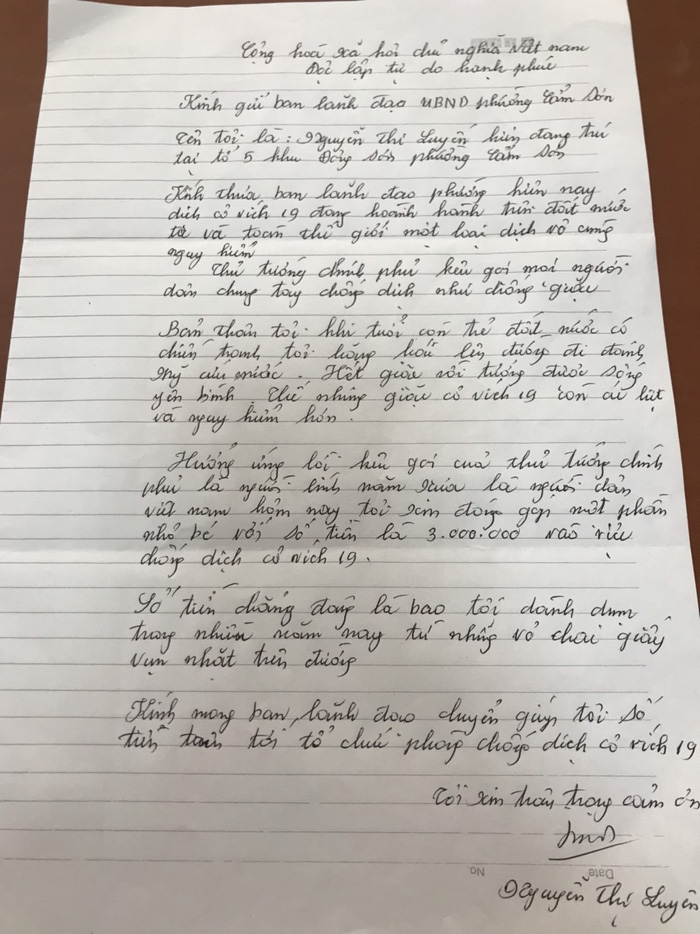 Cộng hoà xã hỏi chủ nghĩa việt nam
Độc lập tự do hạnh phúc
Kính gửi ban lãnh đạo UBND phường Cẩm Sơn
Tên tôi là : Nguyễn Thị Luyến hiện đang trú
tại tổ 5 khu Đông Sơn phường Cẩm Sơn
Kính thưa ban lãnh đạo phường hiện nay
dịch cô vích 19 đang hoành hành trên đất nước
ta và toàn thế giới một loại dịch vô cùng
nguy hiểm
Thủ tướng chính phủ kêu gọi mọi người
dân chung tay chống dịch như chống giặc
Bản thân tôi khi tuổi còn trẻ đất nước có
chiến tranh tôi hăng hái lên đường đi đánh
mỹ cứu nước . Hết giặc rồi tưởng được sống
yên bình . Thế nhưng giặc cô vích 19 còn
và nguy hiểm hơn .
Hưởng ứng lời kêu gọi của thủ tướng chính
phủ là người lính năm xưa là người dân
việt nam hôm nay tôi xin đóng góp một phần
nhỏ bé với số tiền là 3.000.000 vào việc
chống dịch cô vích 19 .
Số tiền chẳng đáng là bao tôi dành dụm
trong nhiều năm nay từ những vỏ chai giấy
vụn nhặt trên đường
Kính mong ban lãnh đạo chuyển giúp tôi số
tiền trên tới tổ chức phòng chống dịch cô vích 19
Tôi xin trân trọng cảm ơn
No Date
Nguyễn Thị Luyến